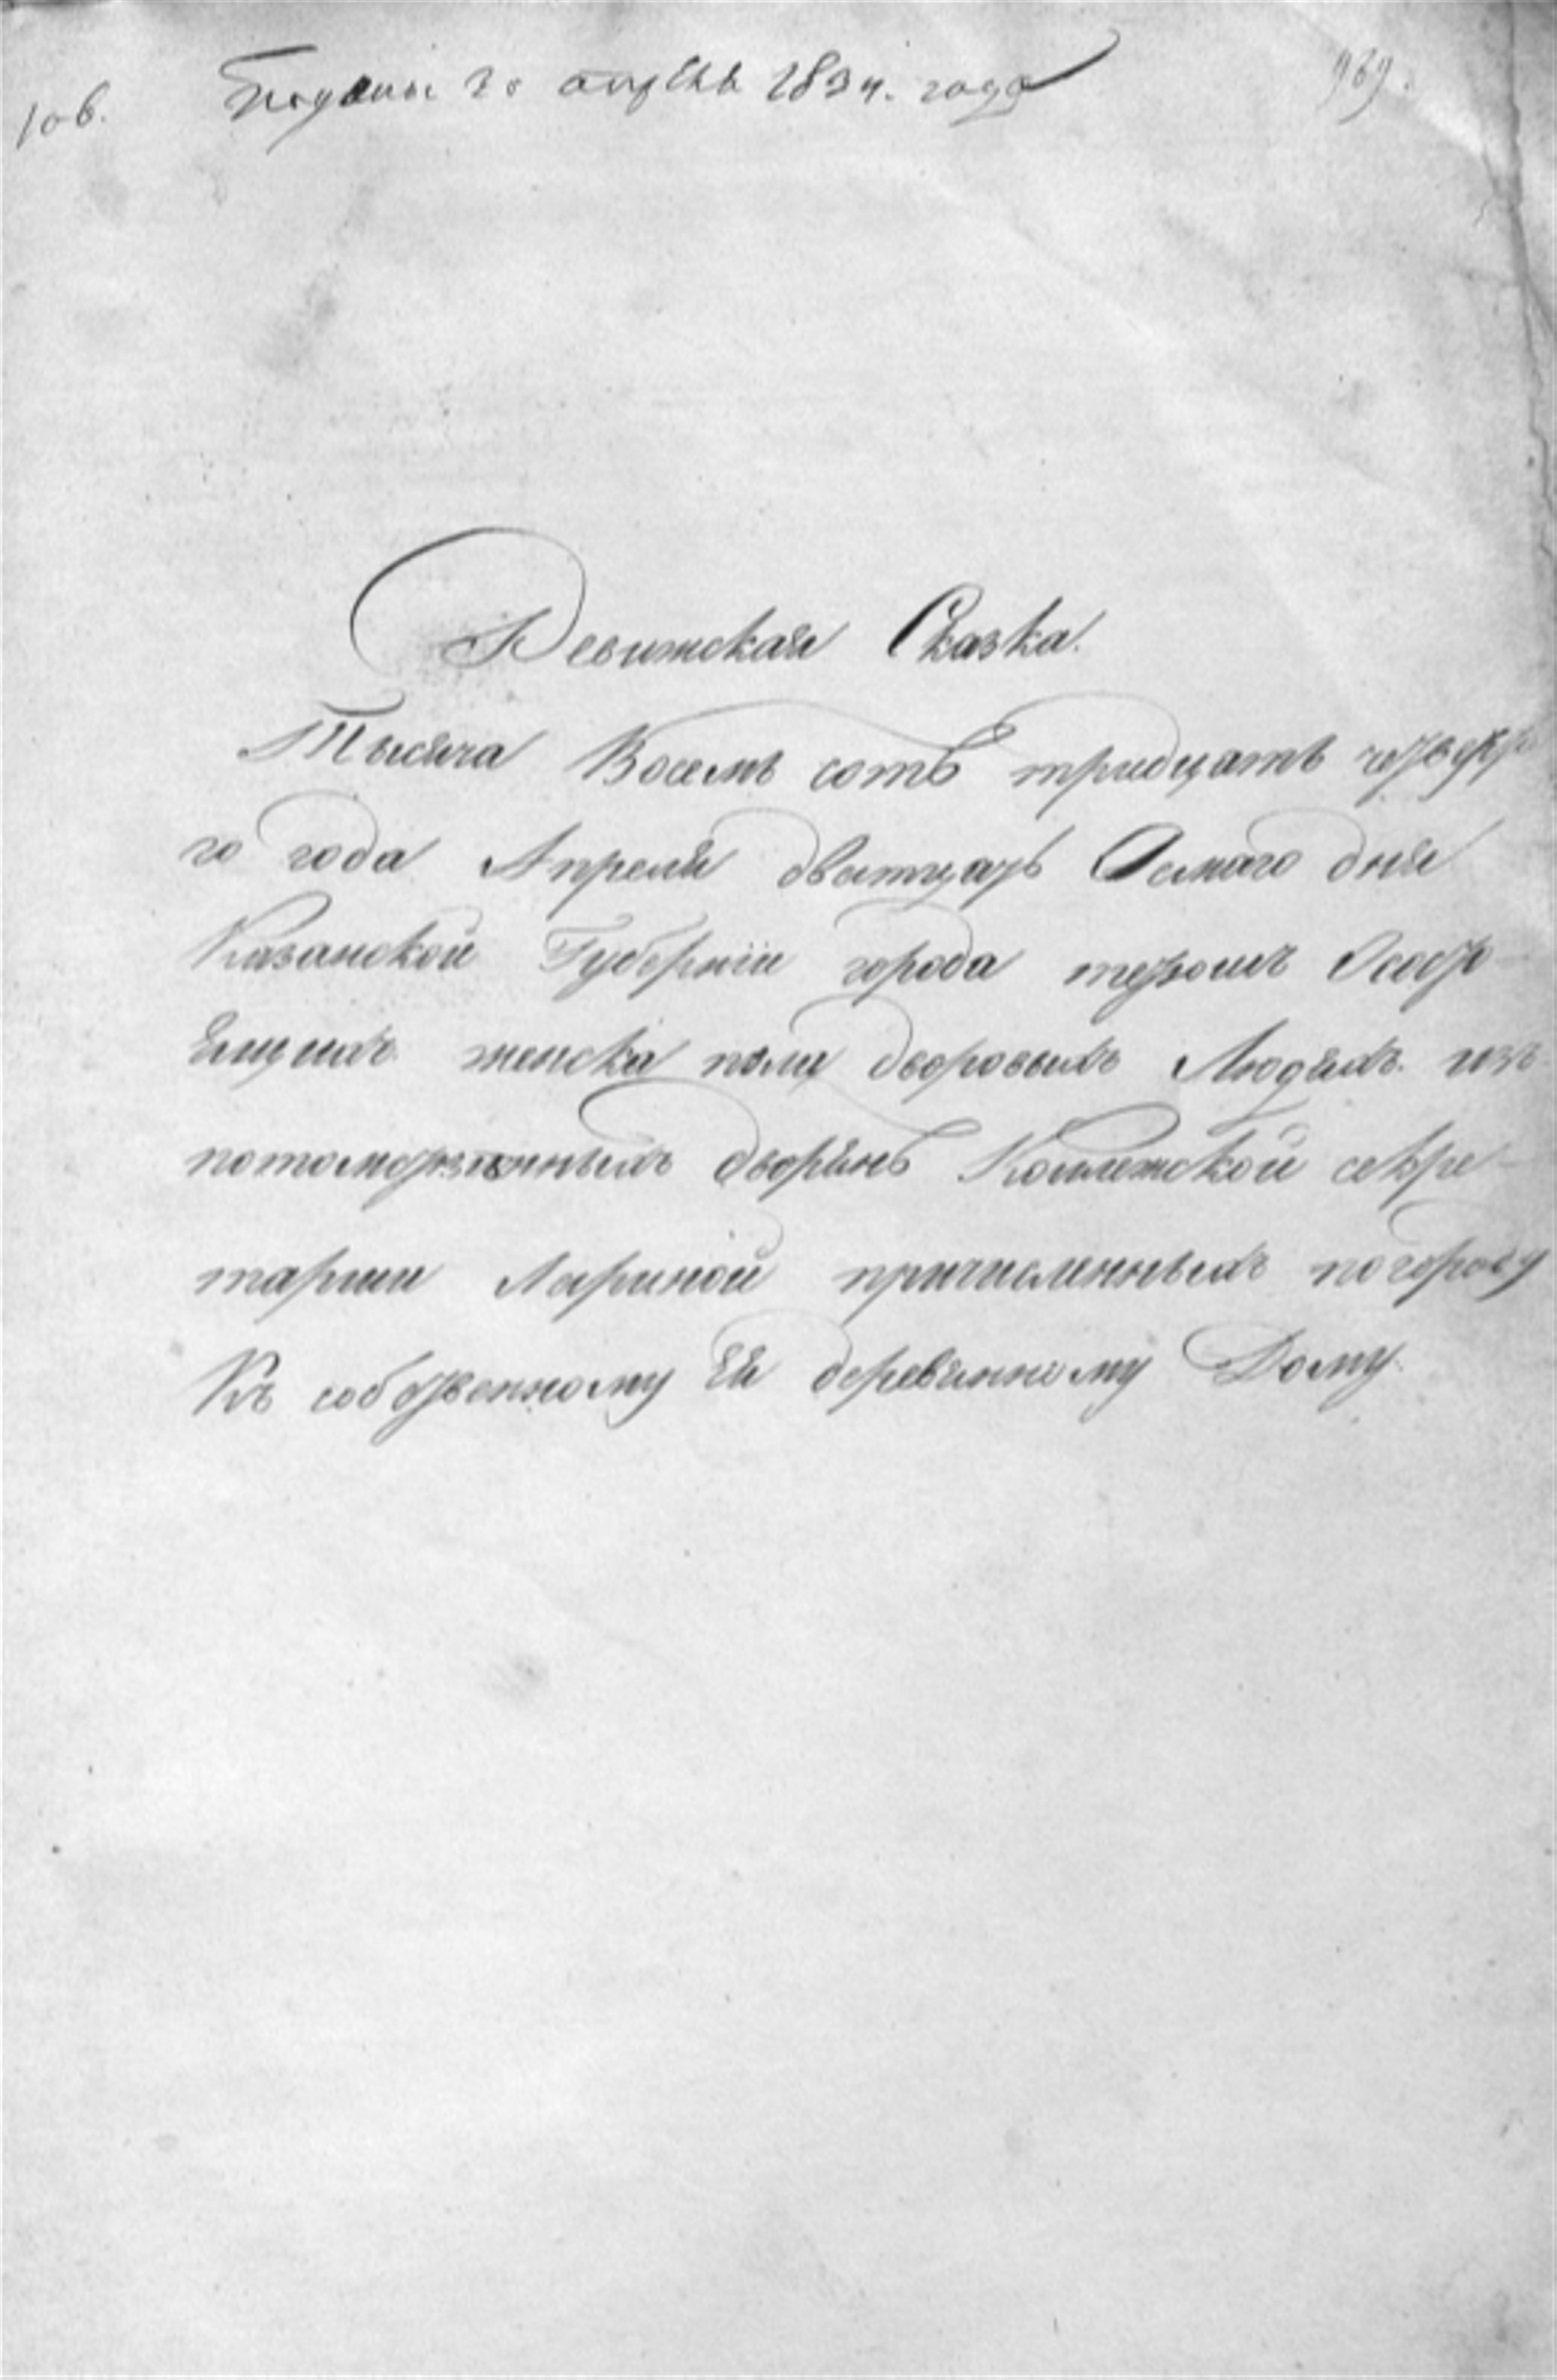 106. Поданы 30 апрѣля 1834. года 969.
Ревижская Сказка.
Тысяча Восемь сотъ тридцать четвер
го года Апреля дватцать Осмаго дня
Казанской Губернiи города
женска полу дворовыхъ Людяхъ. изъ
дворянъ Колежской секре
тарши Лариной причисленныхъ по городу
Къ собственному Ей деревянному Дому.